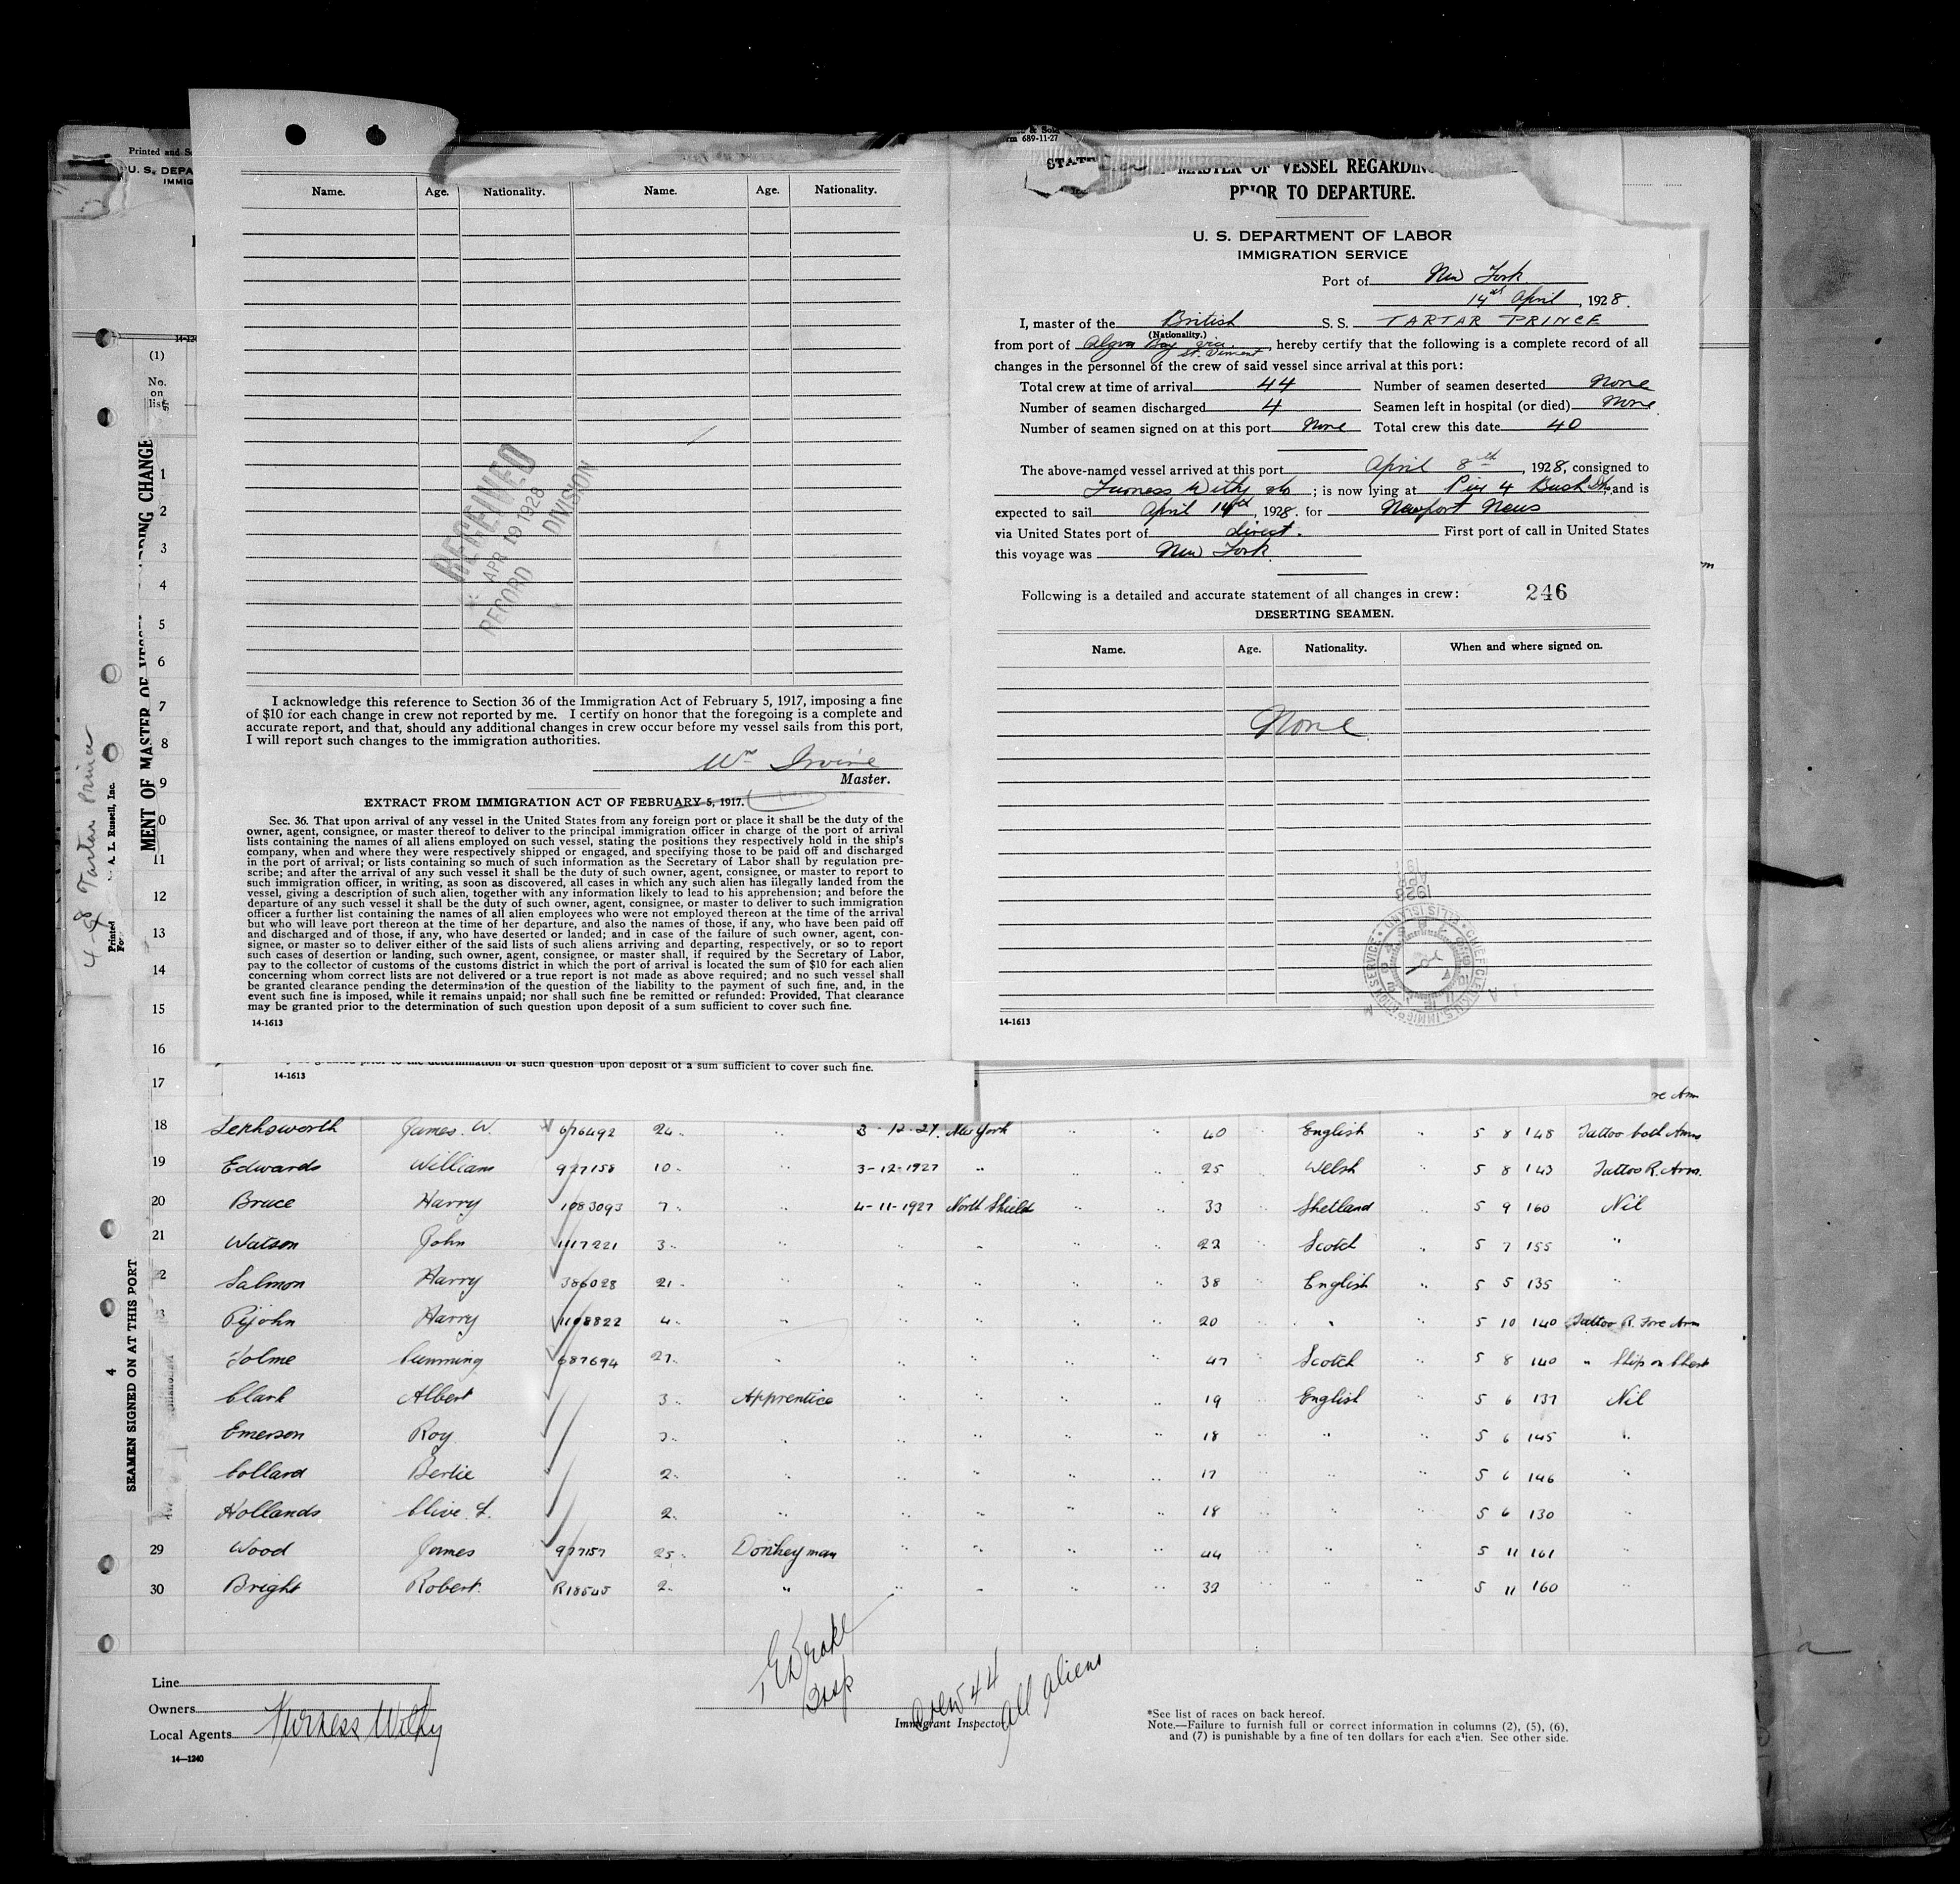 Printed and S
U. S. DEPA
IMMIG
14-124
(1)
No.
on
list
MENT OF MASTER OF VESSEL
RDING CHANGE
4-8 Tartar Prince
A. L. Russell, Inc.
Printed
For
SEAMEN SIGNED ON AT THIS PORT
4
Name. Age. Nationality. Name. Age. Nationality.
RECEIVED
APR 19 1928
RECORD DIVISION
I acknowledge this reference to Section 36 of the Immigration Act of February 5, 1917, imposing a fine
of $10 for each change in crew not reported by me. I certify on honor that the foregoing is a complete and
accurate report, and that, should any additional changes in crew occur before my vessel sails from this port,
I will report such changes to the immigration authorities.
Wm Irvine
Master.
EXTRACT FROM IMMIGRATION ACT OF FEBRUARY 5, 1917.
Sec. 36. That upon arrival of any vessel in the United States from any foreign port or place it shall be the duty of the
owner, agent, consignee, or master thereof to deliver to the principal immigration officer in charge of the port of arrival
lists containing the names of all aliens employed on such vessel, stating the positions they respectively hold in the ship's
company, when and where they were respectively shipped or engaged, and specifying those to be paid off and discharged
in the port of arrival; or lists containing so much of such information as the Secretary of Labor shall by regulation pre-
scribe; and after the arrival of any such vessel it shall be the duty of such owner, agent, consignee, or master to report to
such immigration officer, in writing, as soon as discovered, all cases in which any such alien has illegally landed from the
vessel, giving a description of such alien, together with any information likely to lead to his apprehension; and before the
departure of any such vessel it shall be the duty of such owner, agent, consignee, or master to deliver to such immigration
officer a further list containing the names of all alien employees who were not employed thereon at the time of the arrival
but who will leave port thereon at the time of her departure, and also the names of those, if any, who have been paid off
and discharged and of those, if any, who have deserted or landed; and in case of the failure of such owner, agent, con-
signee, or master so to deliver either of the said lists of such aliens arriving and departing, respectively, or so to report
such cases of desertion or landing, such owner, agent, consignee, or master shall, if required by the Secretary of Labor,
pay to the collector of customs of the customs district in which the port of arrival is located the sum of $10 for each alien
concerning whom correct lists are not delivered or a true report is not made as above required; and no such vessel shall
be granted clearance pending the determination of the question of the liability to the payment of such fine, and, in the
event such fine is imposed, while it remains unpaid; nor shall such fine be remitted or refunded: Provided, That clearance
may be granted prior to the determination of such question upon deposit of a sum sufficient to cover such fine.
14-1613
rm 689-11-27
STAT MASTER OF VESSEL REGARDING
PRIOR TO DEPARTURE.
U. S. DEPARTMENT OF LABOR
IMMIGRATION SERVICE
Port of New York
14th April, 1928.
I, master of the British S. S. TARTAR PRINCE
(Nationality.)
from port of Algoa Bay via St. Vincent, hereby certify that the following is a complete record of all
changes in the personnel of the crew of said vessel since arrival at this port:
Total crew at time of arrival 44 Number of seamen deserted None
Number of seamen discharged 4 Seamen left in hospital (or died) None
Number of seamen signed on at this port None Total crew this date 40
The above-named vessel arrived at this port April 8th, 1928, consigned to
Furness Withy &Co; is now lying at Pier 4 Bush Dks, and is
expected to sail April 14th, 1928. for Newport News
via United States port of direct. First port of call in United States
this voyage was New York
Following is a detailed and accurate statement of all changes in crew: 246
DESERTING SEAMEN.
Name. Age. Nationality. When and where signed on.
None
1928
14-1613
determination of such question upon deposit of a sum sufficient to cover such fine.
14-1613
1
2
3
4
5
6
7
8
9
0
11
12
13
14
15
16
17 re Arm
18 James. W. 676492 24 " 3-12-27. New York " " 40 English 5 8 148 Tattoo both Arms
19 Edwards William 927158 10 " 3-12-1927 " " " 25 Welsh 5 8 143 Tattoo R. Arm.
20 Bruce Harry 1083093 7 " 4-11-1927 North Shields " " 33 Shetland 5 9 160 Nil
21 Watson John 1117221 3 " " " " " 22 Scotch " 5 7 155 "
2 Salmon Harry 386028 21 " " " " " 38 English " 5 5 135 "
3 Pyjohn Harry 1108822 4 " " " " " 20 " " 5 10 140 Tattoo R. Fore Arm
Tolme Cumming 687694 27 " " " " " 47 Scotch " 5 8 140 " Ship on Chest
Clark Albert 3 Apprentice " " " " 19 English " 5 6 137 Nil
Emerson Roy 3 " " " " " 18 " " 5 6 145 "
Collard Bertie 2 " " " " " 17 " " 5 6 146 "
Hollands Clive. L. 2 " " " " " 18 " " 5 6 130 "
29 Wood James 927157 25 Donkeyman " " " " 44 " " 5 11 161 "
30 Bright Robert. R18545 2 " " " " " 32 " " 5 11 160 "
Line
Owners
Local Agents Furness Withy
14—1240
Drake
Insp
Crew 44
All Aliens
Immigrant Inspector
*See list of races on back hereof.
Note.—Failure to furnish full or correct information in columns (2), (5), (6),
and (7) is punishable by a fine of ten dollars for each alien. See other side.